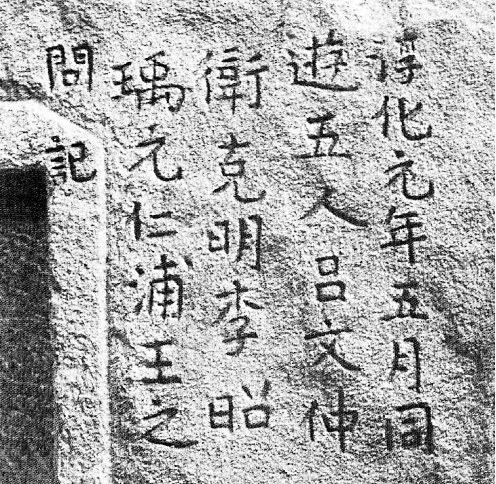 淳化元年五月同
遊五人呂文仲
衛克明李昭
瑀元仁浦王之
問記